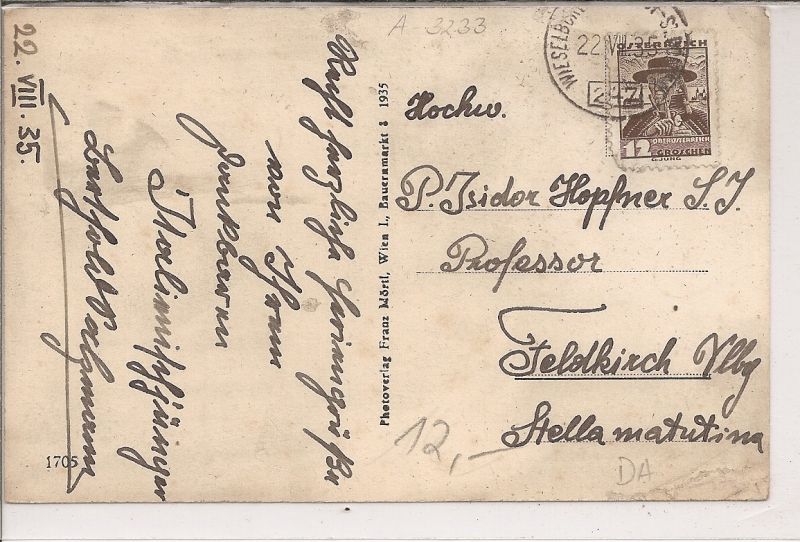 22. VIII. 35.
Recht herzliche Feriengrüße
von Ihrem
dankbaren
Italienischjünger
Photoverlag Franz Mörtl, Wien I., Bauernmarkt 8 1935
1705
A 3233
WIESELBURG
22.VIII.35
ÖSTERREICH
12
OBERÖSTERREICH
GROSCHEN
G. JUNG
Hochw.
P. Isidor Hopfner S. J.
Professor
Feldkirch Vlbg
Stella matutina
12,-
DA